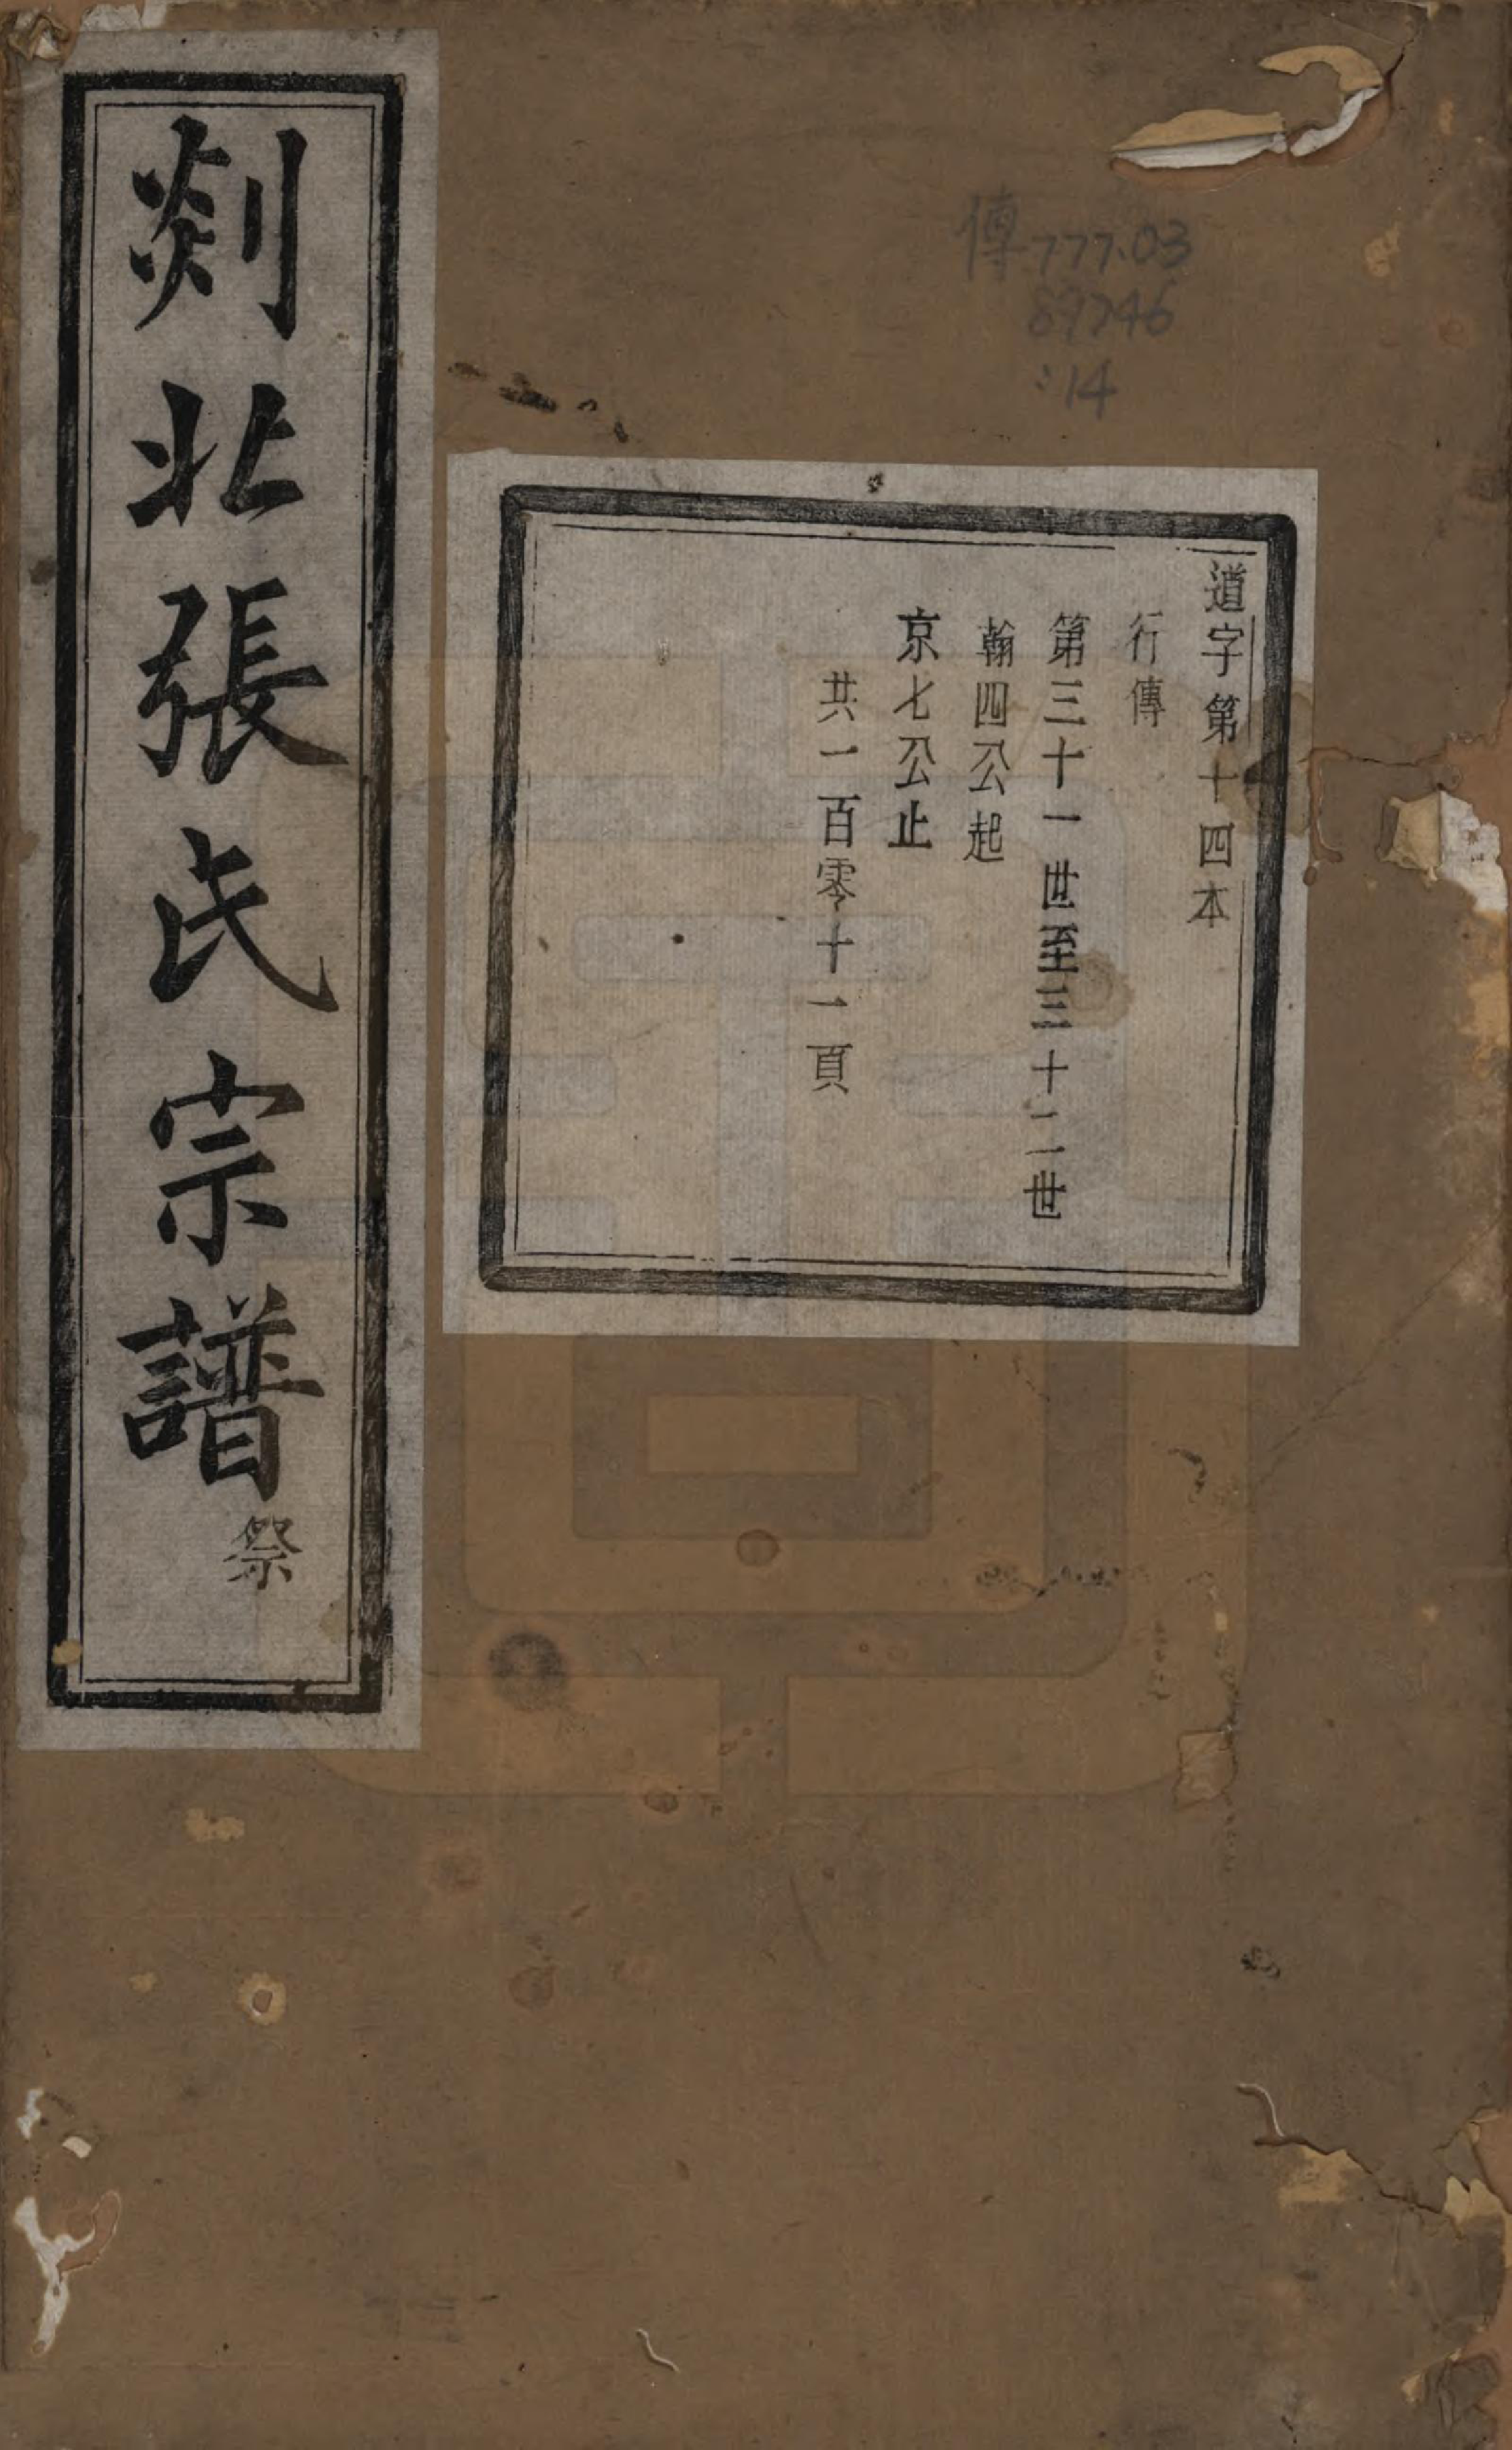 傳777.03
89746
:14
道字第十四本
行傳
第三十一世至三十二世
翰四公起
京七公止
共一百零十一頁
剡北張氏宗譜
祭